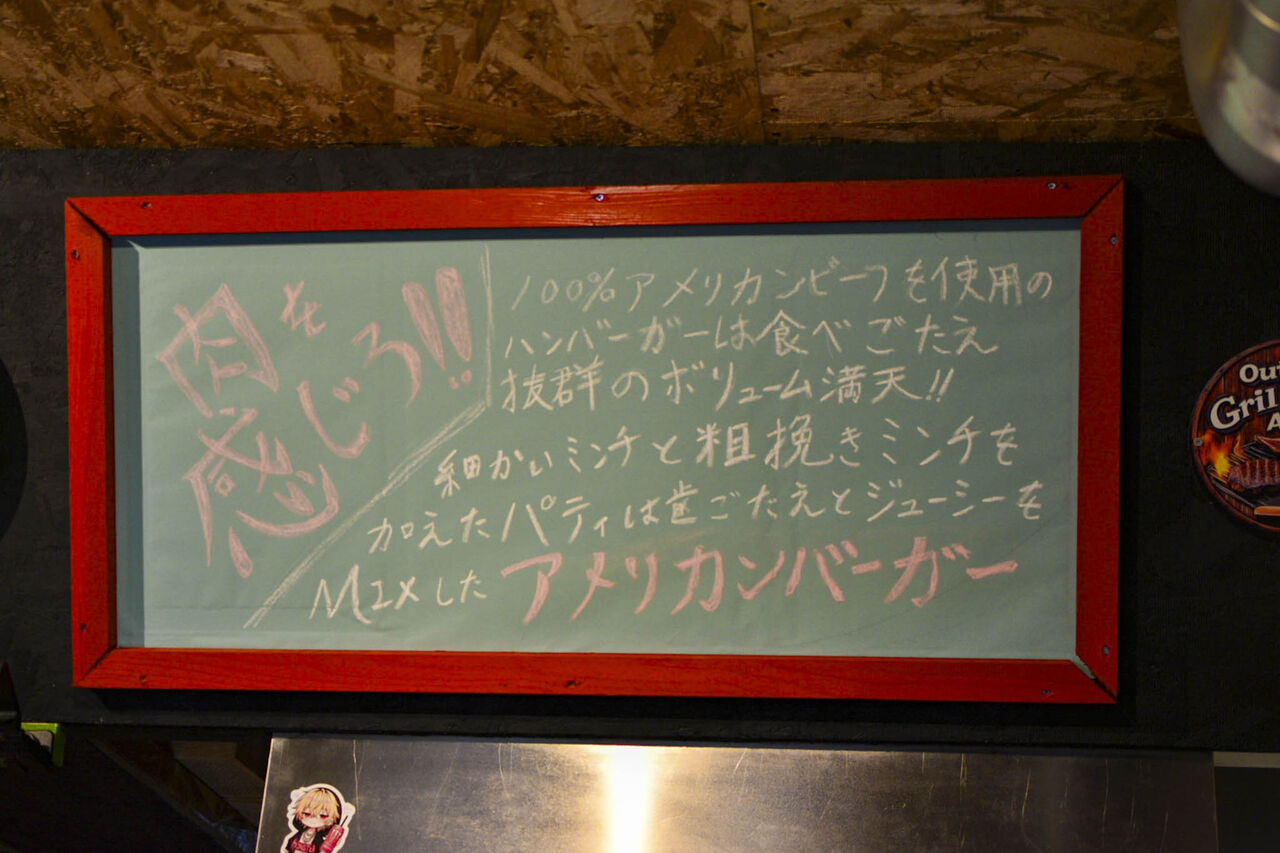 肉を
感じろ!!
100%アメリカンビーフを使用の
ハンバーガーは食べごたえ
抜群のボリューム満天!!
細かいミンチと粗挽きミンチを
加えたパティは歯ごたえとジューシーを
MIXした アメリカンバーガー
Gril